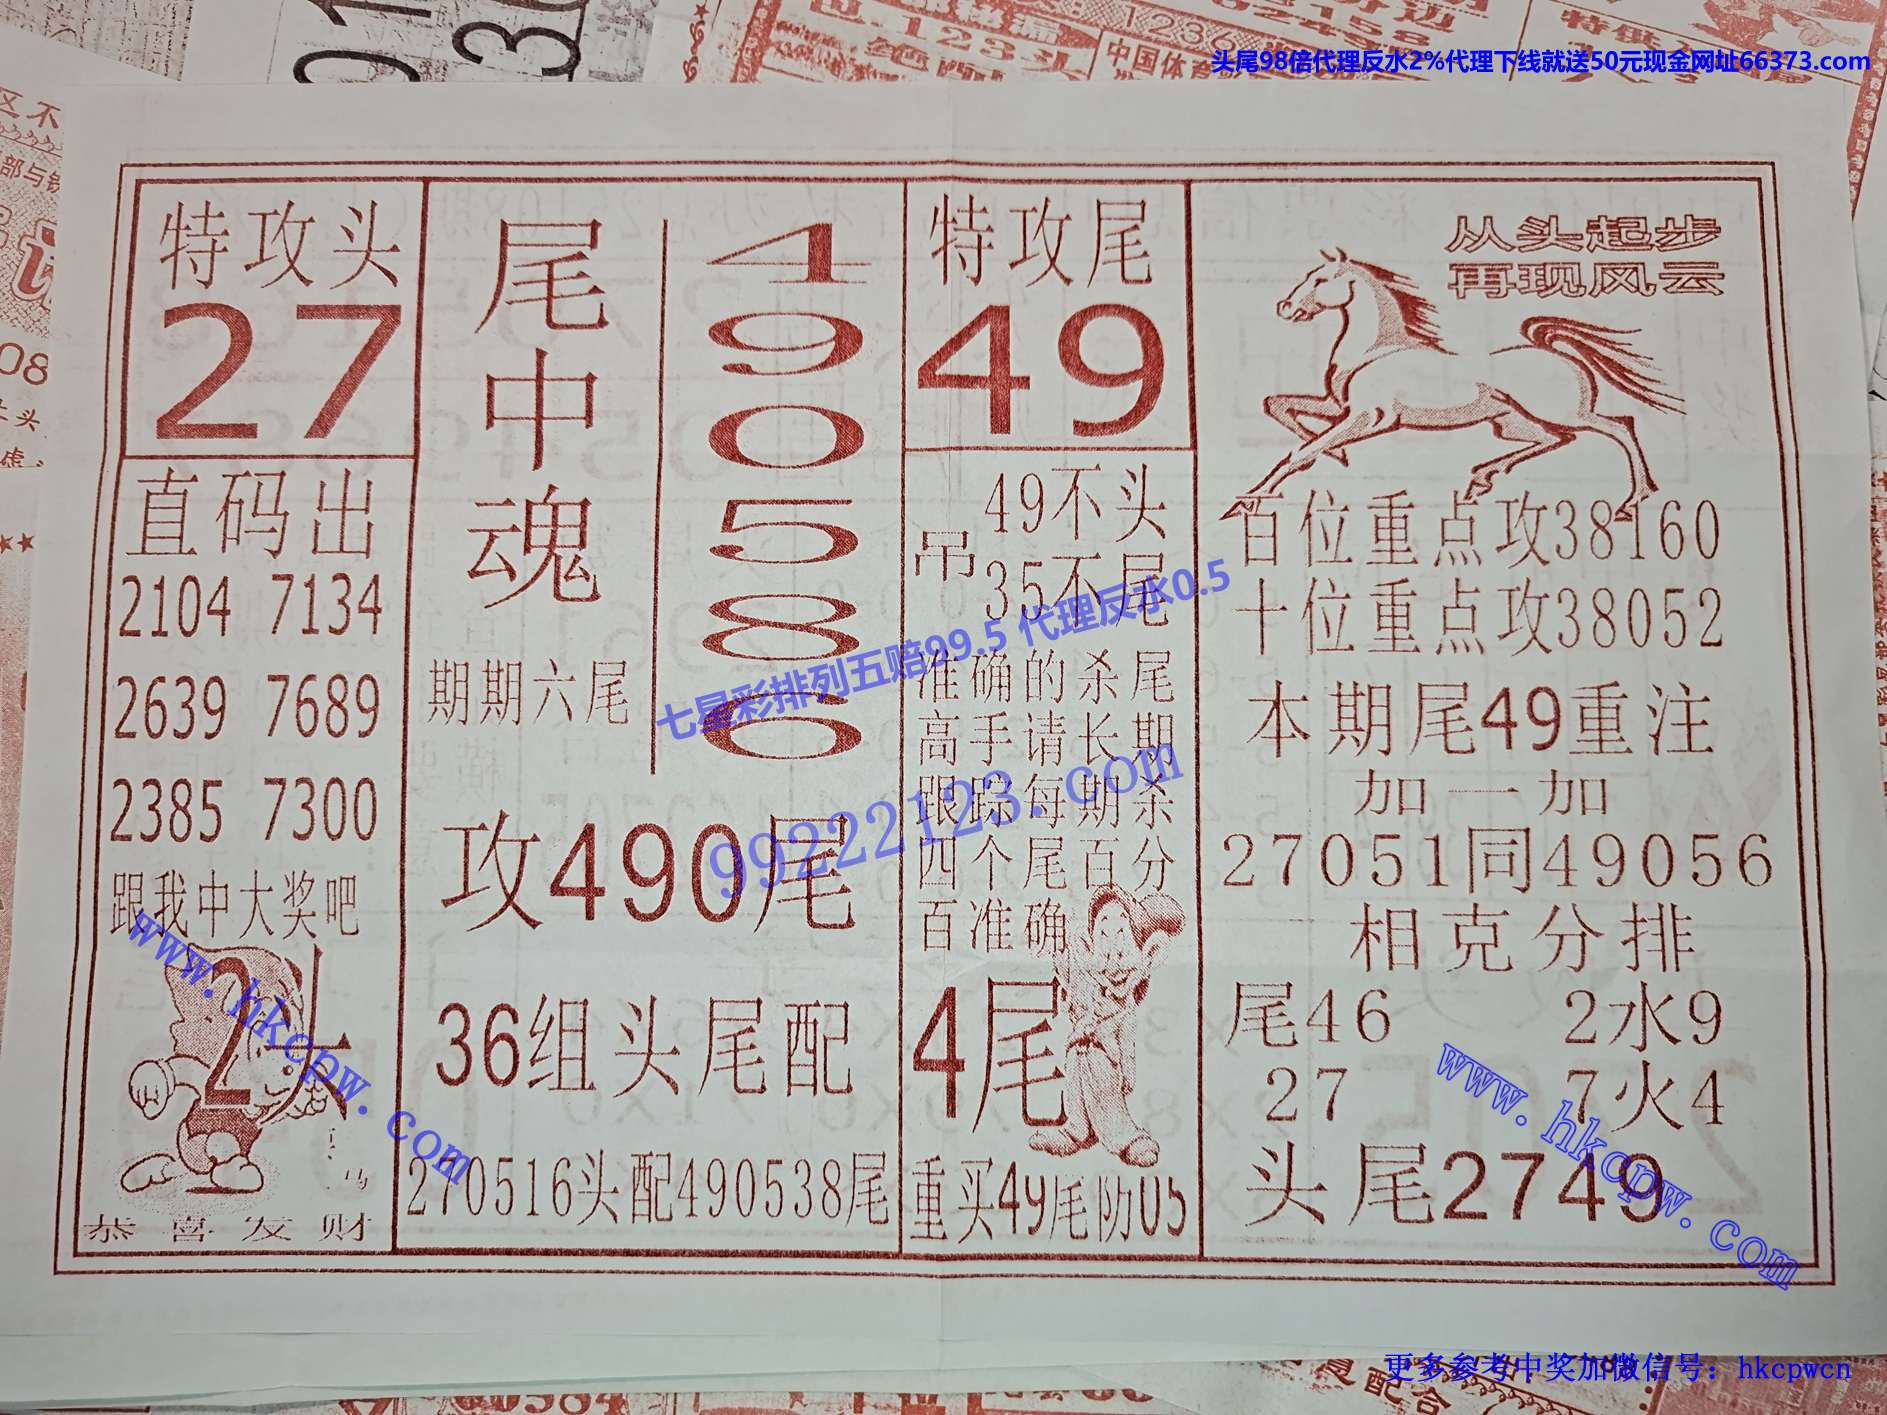 头尾98倍代理反水2%代理下线就送50元现金网址66373.com
特攻头
27
直码出
2104 7134
2639 7689
2385 7300
跟我中大奖吧
2头
恭喜发财
尾中魂
期期六尾
4
9
0
5
8
6
攻490尾
36组头尾配
270516头配490538尾
特攻尾
49
吊
49不头
35不尾
准确的杀尾
高手请长期
跟踪每期杀
四个尾百分
百准确
4尾
重买49尾防05
从头起步
再现风云
百位重点攻38160
十位重点攻38052
本期尾49重注
加一加
27051同49056
相克分排
尾46 2水9
27 7火4
头尾2749
七星彩排列五赔99.5 代理反水0.5
99222123.com
www.hkcpw.com
www.hkcpw.com
更多参考中奖加微信号：hkcpwcn